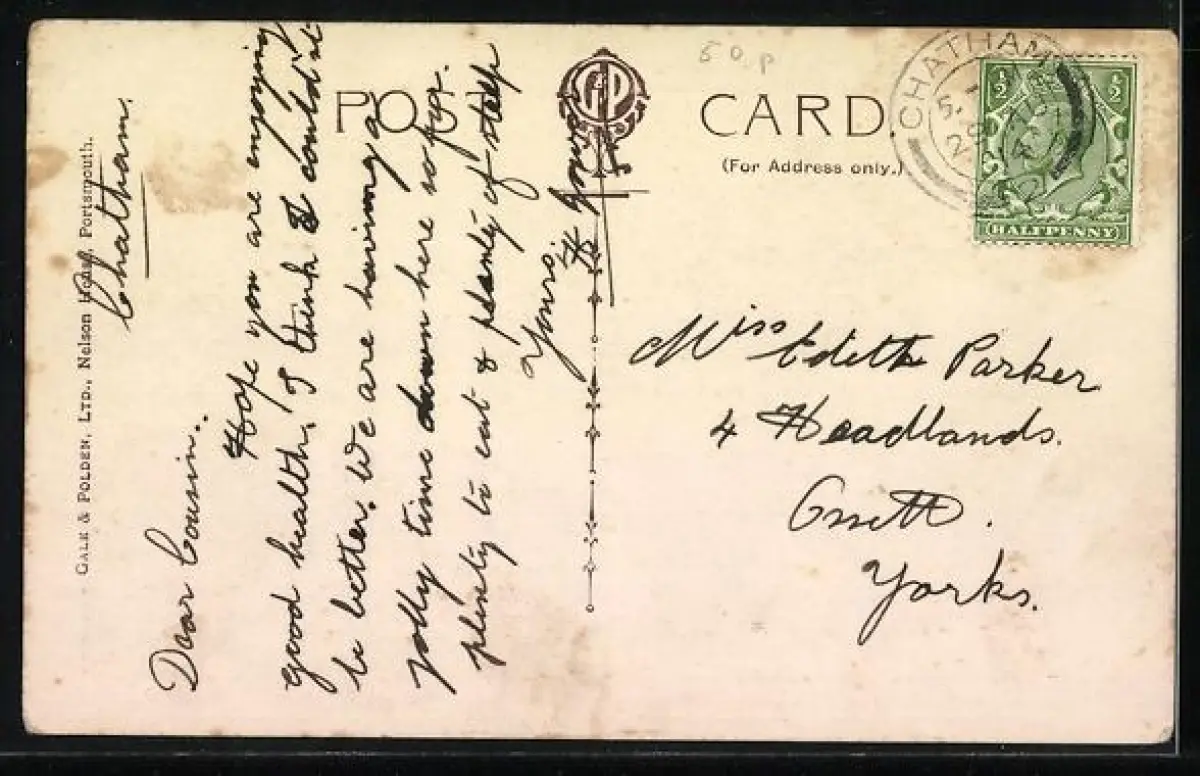 GALE & POLDEN, LTD., Nelson House, Portsmouth.
POST CARD.
(For Address only.)
50p
CHATHAM
5.
½ ½
HALFPENNY
Chatham.
Dear Cousin..
Hope you are enjoying
good health, I think I couldnt
be better. We are having a
jolly time down here so far.
plenty to eat & plenty of sleep
Yours.
Miss Edith Parker
4 Headlands.
Ossett.
Yorks.